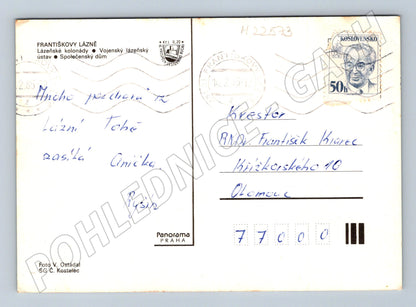 FRANTIŠKOVY LÁZNĚ
Lázeňské kolonády • Vojenský lázeňský
ústav • Společenský dům
KčS 0,20
H22573
ČESKOSLOVENSKO
50h
Mnoho pozdravů z
Lázní Tobě
zasílá Anička
Kvestor
RNDr František
Křižkovského 10
Olomouc
77000
Panorama
PRAHA
Foto V. Ostádal
SG Č. Kostelec
POHLEDNICE GASH